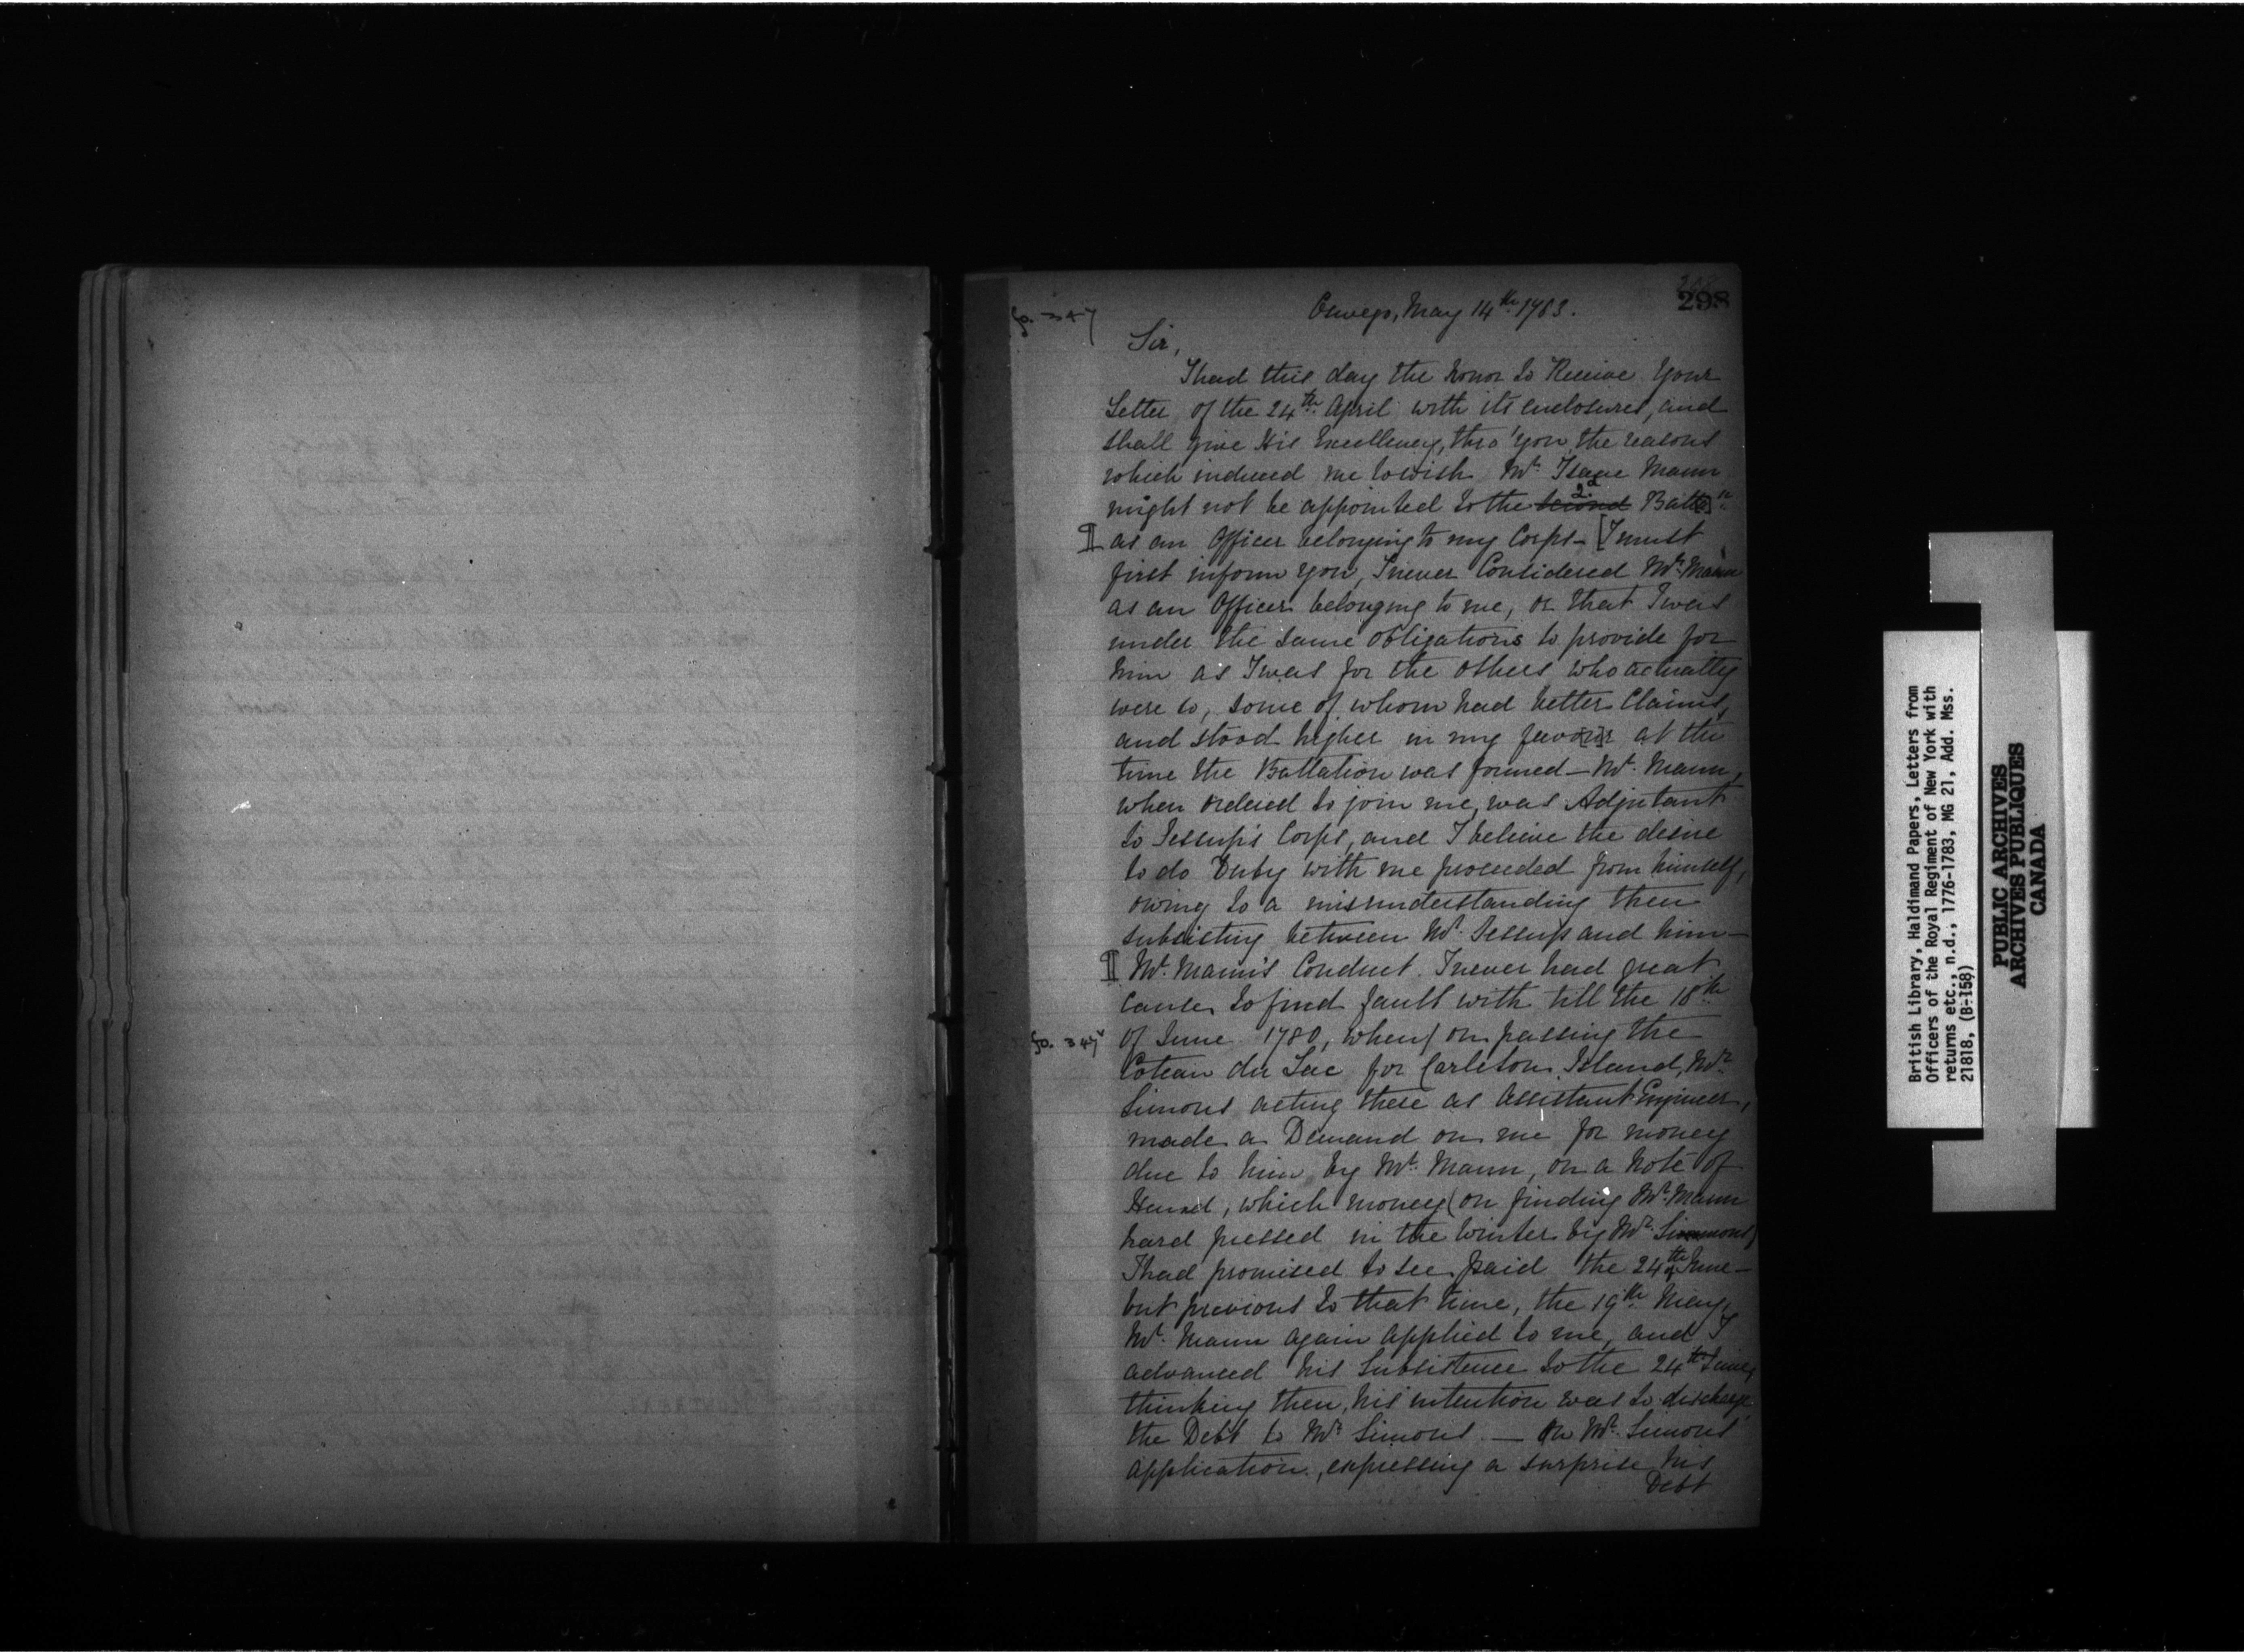 298
fo. 347
Oswego, May 14th 1783.
Sir,
I had this day the honor to Receive Your
Letter of the 24th April with its enclosures, and
shall give His Excellency, thro' you, the reasons
which induced me to wish Mr Isaac Mann
might not be appointed to the second 2d Batt[o]n
¶ as an Officer belonging to my Corps— [I must
first inform you, I never Considered Mr Mann
as an Officer belonging to me, or that I was
under the same obligations to provide for
him as I was for the others who actually
were so, some of whom had better Claims,
and stood higher in my favo[u]r at the
time the Battalion was formed— Mr Mann,
when ordered to join me, was Adjutant
to Jessup's Corps, and I believe the desire
to do Duty with me proceeded from himself,
owing to a misunderstanding then
subsisting between Mr Jessup and him—
¶ Mr Mann's Conduct I never had great
cause to find fault with till the 18th
fo. 347v of June 1780, when/ on passing the
Coteau du Lac for Carleton Island, Mr
Simons acting there as Assistant Engineer,
made a Demand on me for money
due to him by Mr Mann, on a Note of
Hand, which money (on finding Mr Mann
hard pressed in the Winter by Mr Simmons)
I had promised to see paid the 24th of June—
but previous to that time, the 19th May,
Mr Mann again applied to me, and I
advanced his Subsistence to the 24th June,
thinking then, his intention was to discharge
the Debt to Mr Simons — On Mr Simons'
application, expressing a surprise his
Debt
British Library, Haldimand Papers, Letters from
Officers of the Royal Regiment of New York with
returns etc., n.d., 1776-1783, MG 21, Add. Mss.
21818, (B-158)
PUBLIC ARCHIVES
ARCHIVES PUBLIQUES
CANADA